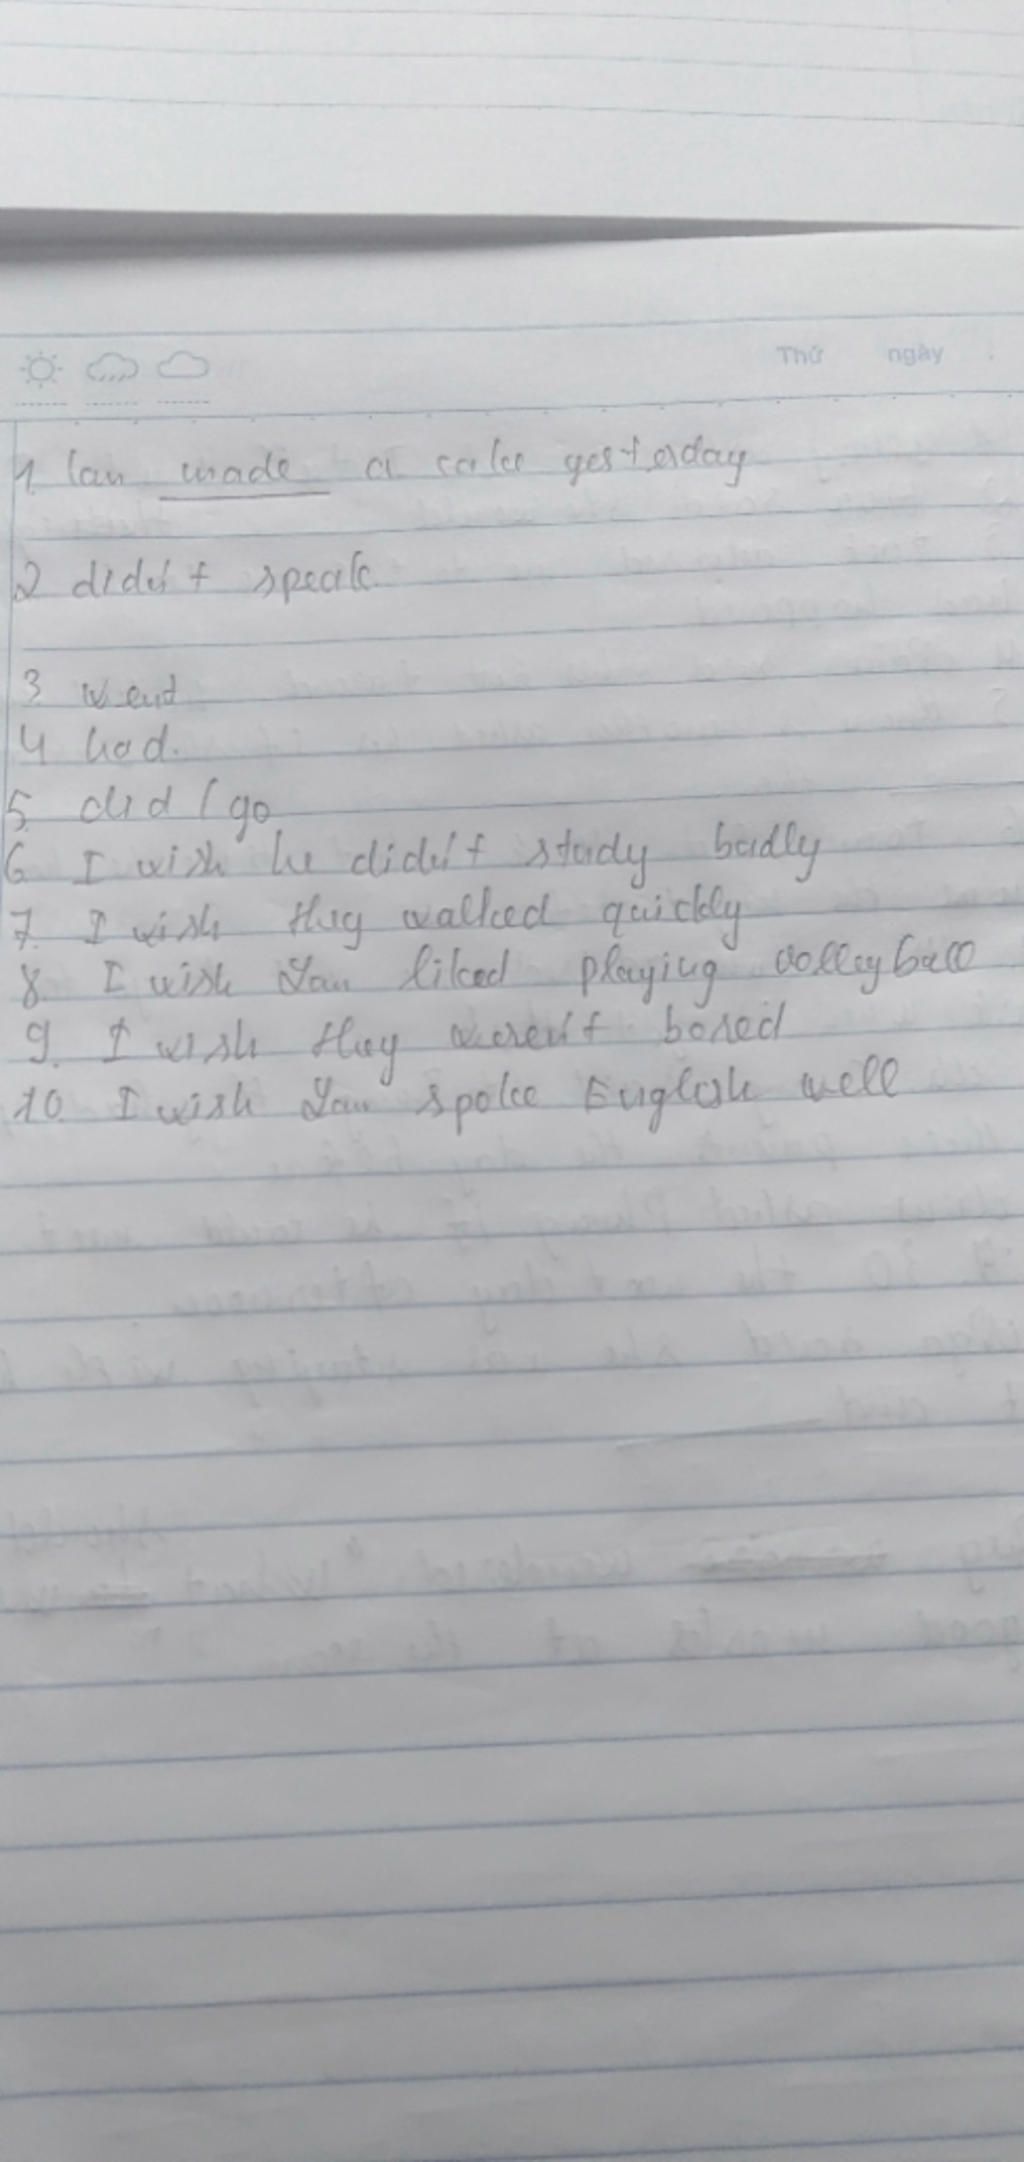 Thứ ngày
1. Lan made a cake yesterday
2 didn't speak
3 went
4 had.
5. did / go
6 I wish he didn't study badly
7. I wish they walked quickly
8. I wish you liked playing volleyball
9. I wish they weren't bored
10. I wish you spoke English well